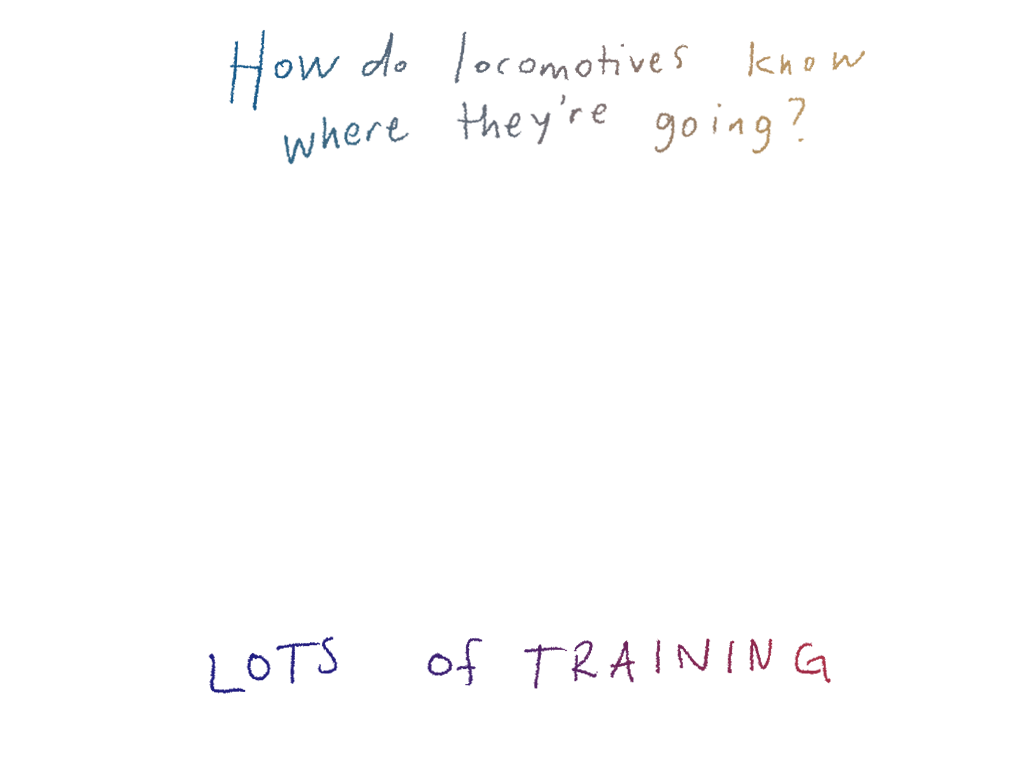 How do locomotives know
where they're going?
LOTS of TRAINING